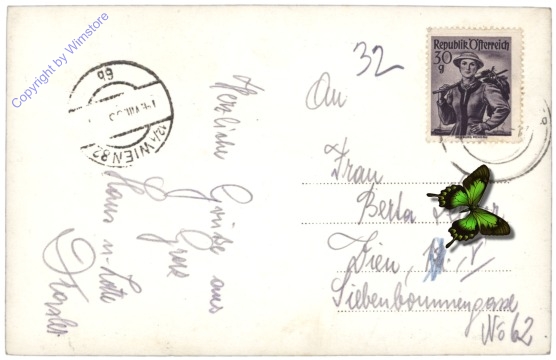 Copyright by Wimstore
32
Republik Österreich
30
g
WIEN 82
6b
Herzliche
Grüße aus
Graz
Hans u.
An
Frau
Berta
Wien,
Siebenbrunnengasse
No 62